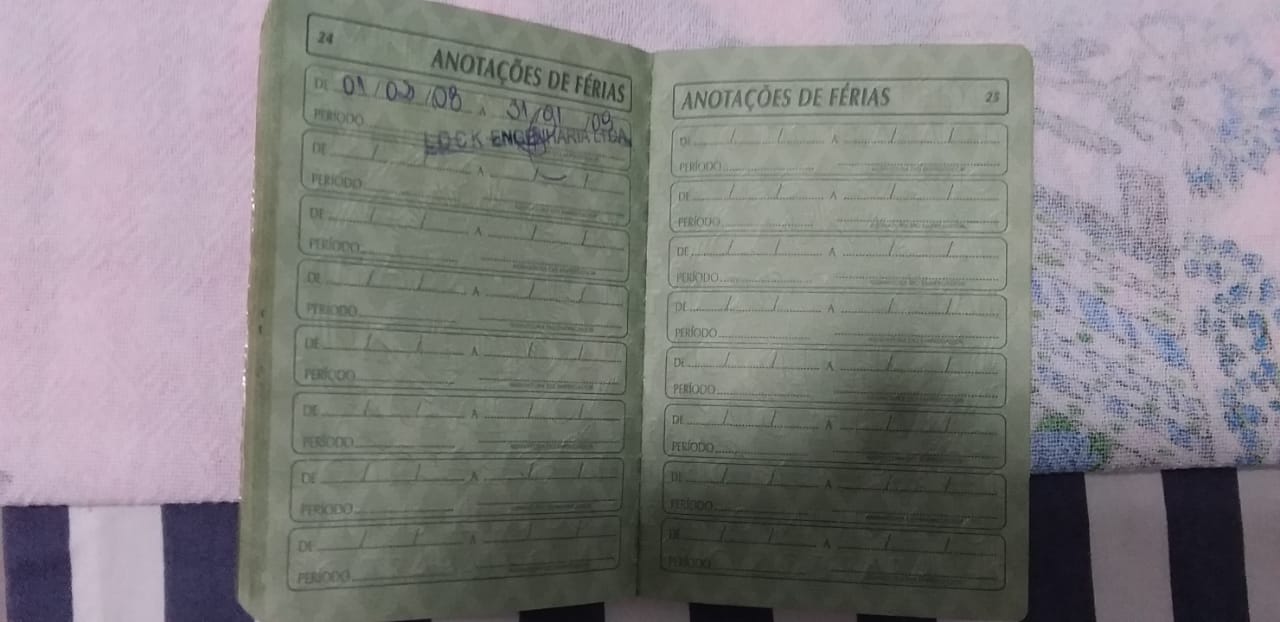 24
ANOTAÇÕES DE FÉRIAS
DE 01/02/08 A 31/01/09
PERÍODO
LOCK ENGENHARIA LTDA
DE / / A / /
PERÍODO
DE / / A / /
PERÍODO
DE / / A / /
PERÍODO
DE / / A / /
PERÍODO
DE / / A / /
PERÍODO
DE / / A / /
PERÍODO
DE / / A / /
PERÍODO
ANOTAÇÕES DE FÉRIAS 25
DE / / A / /
PERÍODO
DE / / A / /
PERÍODO
DE / / A / /
PERÍODO
DE / / A / /
PERÍODO
DE / / A / /
PERÍODO
DE / / A / /
PERÍODO
DE / / A / /
PERÍODO
DE / / A / /
PERÍODO